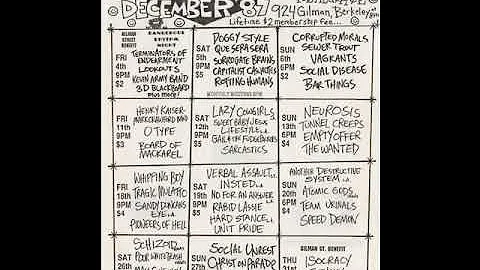 DECEMBER '87
924 Gilman, Berkeley
Lifetime $2 membership fee...
GILMAN
STREET
BENEFIT
FRI
4th
9PM
$2
DANGEROUS
RHYTHM
NIGHT
TERMINATORS OF
ENDEARMENT
LOOKOUTS
KEVIN ARMY BAND
3D BLACKBOARD
plus more!
SAT
5th
9PM
$5
DOGGY STYLE
QUE SERA SERA
SURROGATE BRAINS
CAPITALIST CASUALTIES
ROTTING HUMANS
MONTHLY MEETING 5PM
SUN
6th
6PM
$2
CORRUPTED MORALS
SEWER TROUT
VAGRANTS
SOCIAL DISEASE
BAR THINGS
FRI
11th
9PM
$3
HENRY KAISER
O TYPE
BOARD OF
MACKAREL
SAT
12th
9PM
$5
LAZY COWGIRLS
SWEET BABY JESUS
LIFESTYLE
GAIL & THE FUDGE BUNNIES
SARCASTICS
SUN
13th
5PM
$4
NEUROSIS
TUNNEL CREEPS
EMPTY OFFER
THE WANTED
FRI
18th
9PM
$4
WHIPPING BOY
TRAGIC MULATTO
SANDY DUNCANS
EYE L.A.
PIONEERS OF HELL
SAT
19th
9PM
$5
VERBAL ASSAULT
INSTED L.A.
NO FOR AN ANSWER
RABID LASSIE
HARD STANCE L.A.
UNIT PRIDE
SUN
20th
6PM
$4
ANOTHER DESTRUCTIVE
SYSTEM L.A.
ATOMIC GODS
TEAM URINALS
SPEED DEMON
SAT
26th
SCHIZOID
POOR WHITE TRASH
SUN
27th
SOCIAL UNREST
CHRIST ON PARADE
GILMAN ST. BENEFIT
THU
31st
ISOCRACY